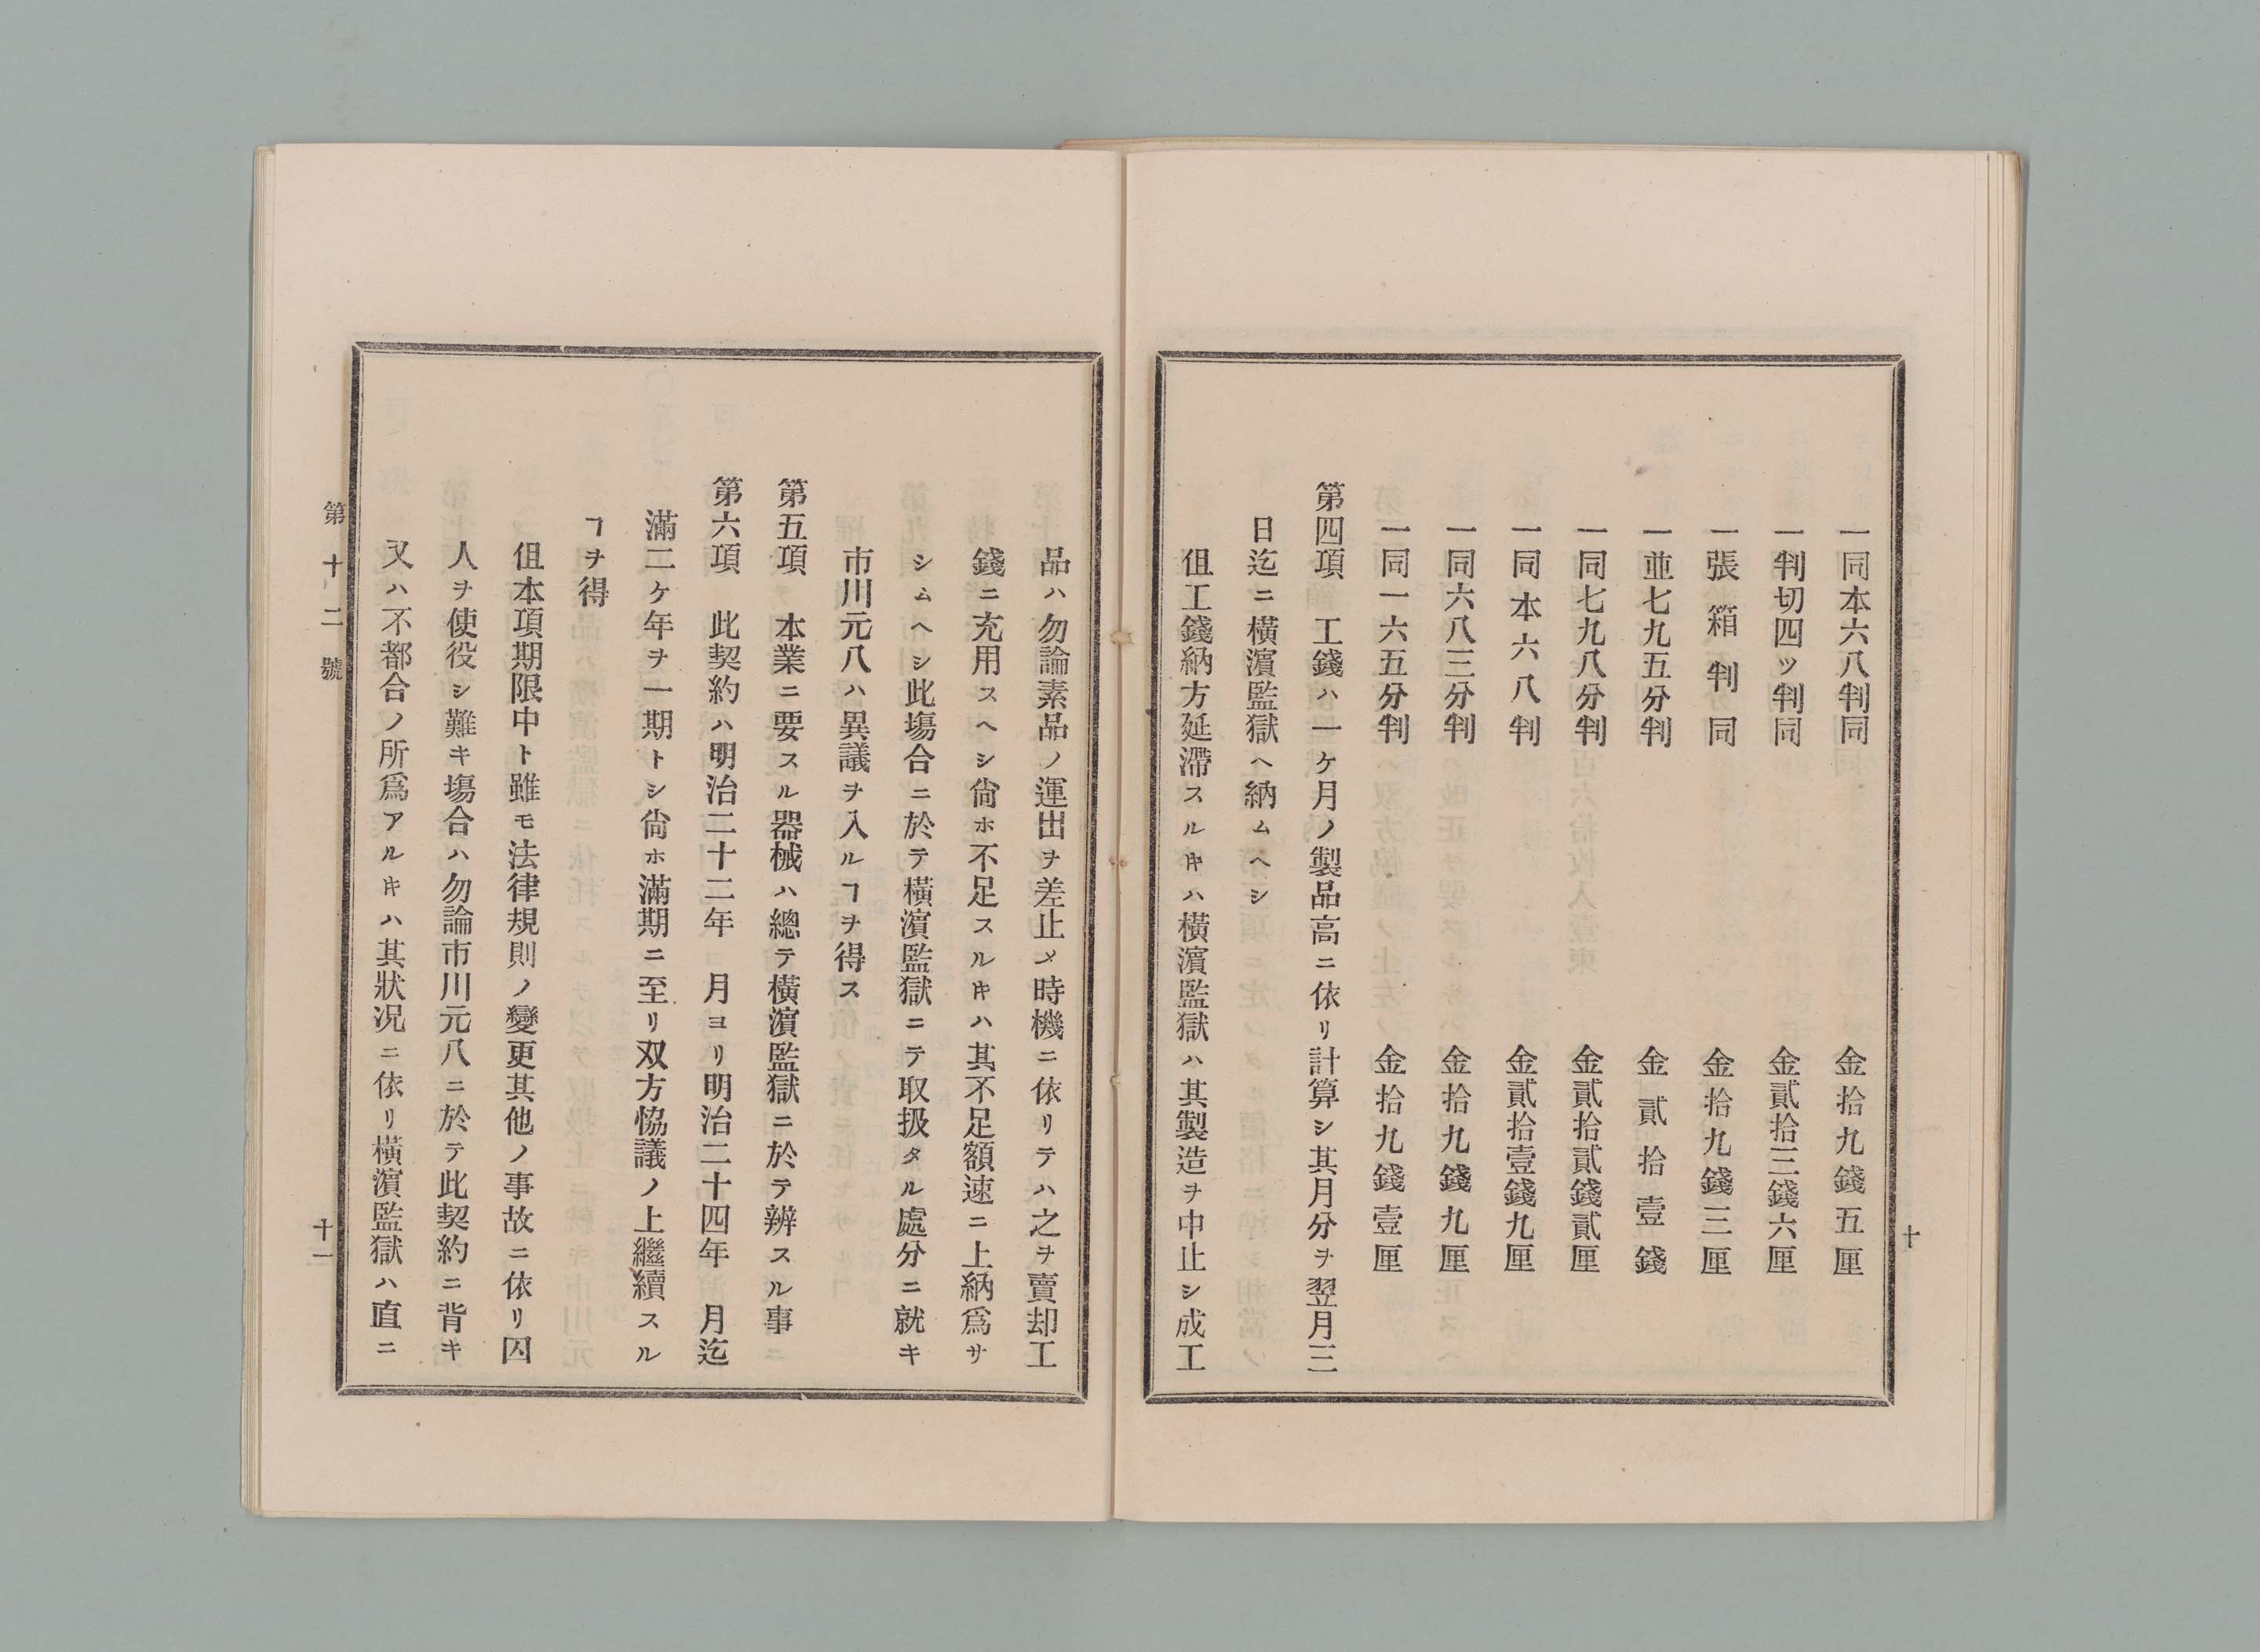 一同本六八判同　金拾九錢五厘
一判切四ッ判同　金貳拾三錢六厘
一張箱判同　金拾九錢三厘
一並七九五分判　金貳拾壹錢
一同七九八分判　金貳拾貳錢貳厘
一同本六八判　金貳拾壹錢九厘
一同六八三分判　金拾九錢九厘
一同一六五分判　金拾九錢壹厘
第四項　工錢ハ一ケ月ノ製品高ニ依リ計算シ其月分ヲ翌月三
日迄ニ橫濱監獄ヘ納ムヘシ
伹工錢納方延滯スルキハ橫濱監獄ハ其製造ヲ中止シ成工
十
品ハ勿論素品ノ運出ヲ差止メ時機ニ依リテハ之ヲ賣却工
錢ニ充用スヘシ尙ホ不足スルキハ其不足額速ニ上納爲サ
シムヘシ此塲合ニ於テ橫濱監獄ニテ取扱タル處分ニ就キ
市川元八ハ異議ヲ入ルヿヲ得ス
第五項　本業ニ要スル器械ハ總テ橫濱監獄ニ於テ辨スル事
第六項　此契約ハ明治二十二年　月ヨリ明治二十四年　月迄
滿二ケ年ヲ一期トシ尙ホ滿期ニ至リ双方恊議ノ上繼續スル
ヿヲ得
伹本項期限中ト雖モ法律規則ノ變更其他ノ事故ニ依リ囚
人ヲ使役シ難キ塲合ハ勿論市川元八ニ於テ此契約ニ背キ
又ハ不都合ノ所爲アルキハ其狀况ニ依リ橫濱監獄ハ直ニ
第十二號
十一